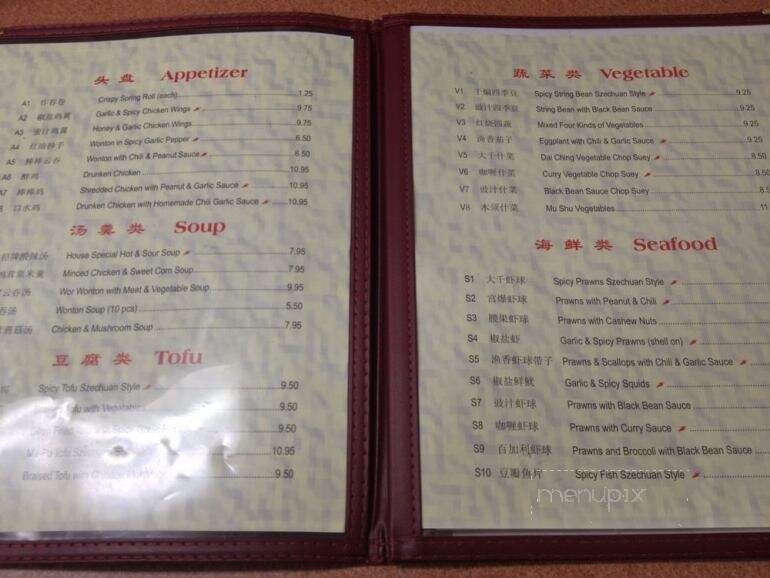 头盘 Appetizer
A1 炸春卷 Crispy Spring Roll (each) 1.25
A2 椒盐鸡翼 Garlic & Spicy Chicken Wings 9.75
A3 蜜汁鸡翼 Honey & Garlic Chicken Wings 9.75
A4 红油抄手 Wonton in Spicy Garlic Pepper 6.50
A5 棒棒云吞 Wonton with Chili & Peanut Sauce 6.50
A6 醉鸡 Drunken Chicken 10.95
A7 棒棒鸡 Shredded Chicken with Peanut & Garlic Sauce 10.95
8 口水鸡 Drunken Chicken with Homemade Chili Garlic Sauce 10.95
汤羹类 Soup
招牌酸辣汤 House Special Hot & Sour Soup 7.95
鸡茸粟米羹 Minced Chicken & Sweet Corn Soup 7.95
云吞汤 Wor Wonton with Meat & Vegetable Soup 9.95
吞汤 Wonton Soup (10 pcs) 5.50
蘑菇汤 Chicken & Mushroom Soup 7.95
豆腐类 Tofu
Spicy Tofu Szechuan Style 9.50
with Vegetable 9.50
9.50
Tofu 10.95
Braised Tofu with 9.50
蔬菜类 Vegetable
V1 干煸四季豆 Spicy String Bean Szechuan Style 9.25
V2 豉汁四季豆 String Bean with Black Bean Sauce 9.25
V3 红烧四蔬 Mixed Four Kinds of Vegetables 9.25
V4 渔香茄子 Eggplant with Chili & Garlic Sauce 9.25
V5 大千什菜 Dai Ching Vegetable Chop Suey 8.50
V6 咖喱什菜 Curry Vegetable Chop Suey 8.50
V7 豉汁什菜 Black Bean Sauce Chop Suey 8.5
V8 木须什菜 Mu Shu Vegetables 11
海鲜类 Seafood
S1 大千虾球 Spicy Prawns Szechuan Style
S2 宫爆虾球 Prawns with Peanut & Chili
S3 腰果虾球 Prawns with Cashew Nuts
S4 椒盐虾 Garlic & Spicy Prawns (shell on)
S5 渔香虾球带子 Prawns & Scallops with Chili & Garlic Sauce
S6 椒盐鲜鱿 Garlic & Spicy Squids
S7 豉汁虾球 Prawns with Black Bean Sauce
S8 咖喱虾球 Prawns with Curry Sauce
S9 百加利虾球 Prawns and Broccoli with Black Bean Sauce
S10 豆瓣鱼片 Spicy Fish Szechuan Style
menupix